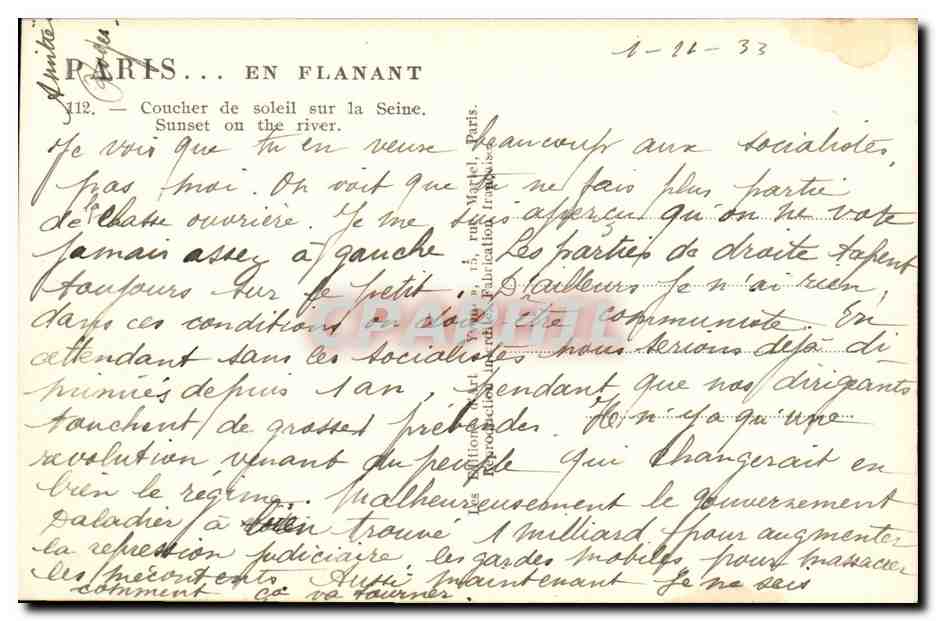 1-11-33
Amitiés
Roger.
PARIS... EN FLANANT
112. — Coucher de soleil sur la Seine.
Sunset on the river.
Je vois que tu en veux beaucoup aux socialistes,
pas moi. On voit que tu ne fais plus partie
de la classe ouvrière. Je me suis aperçu qu'on ne vote
jamais assez à gauche. Les parties de droite tapent
toujours sur le petit. D'ailleurs je n'ai rien,
dans ces conditions on doit être communiste. En
attendant sans les socialistes nous serions déjà di
minués depuis 1 an, pendant que nos dirigeants
touchent de grosses prébendes. Il n'y a qu'une
revolution venant du peuple qui changerait en
bien le régime. Malheureusement le gouvernement
Daladier à bien trouvé 1 milliard pour augmenter
la repression judiciaire, les gardes mobiles pour massacrer
les mécontents. Aussi maintenant je ne sais
comment ça va tourner.
Les Editions d'Art Yvon, 15, rue Martel, Paris.
Reproduction interdite. Fabrication française
CPARAMA